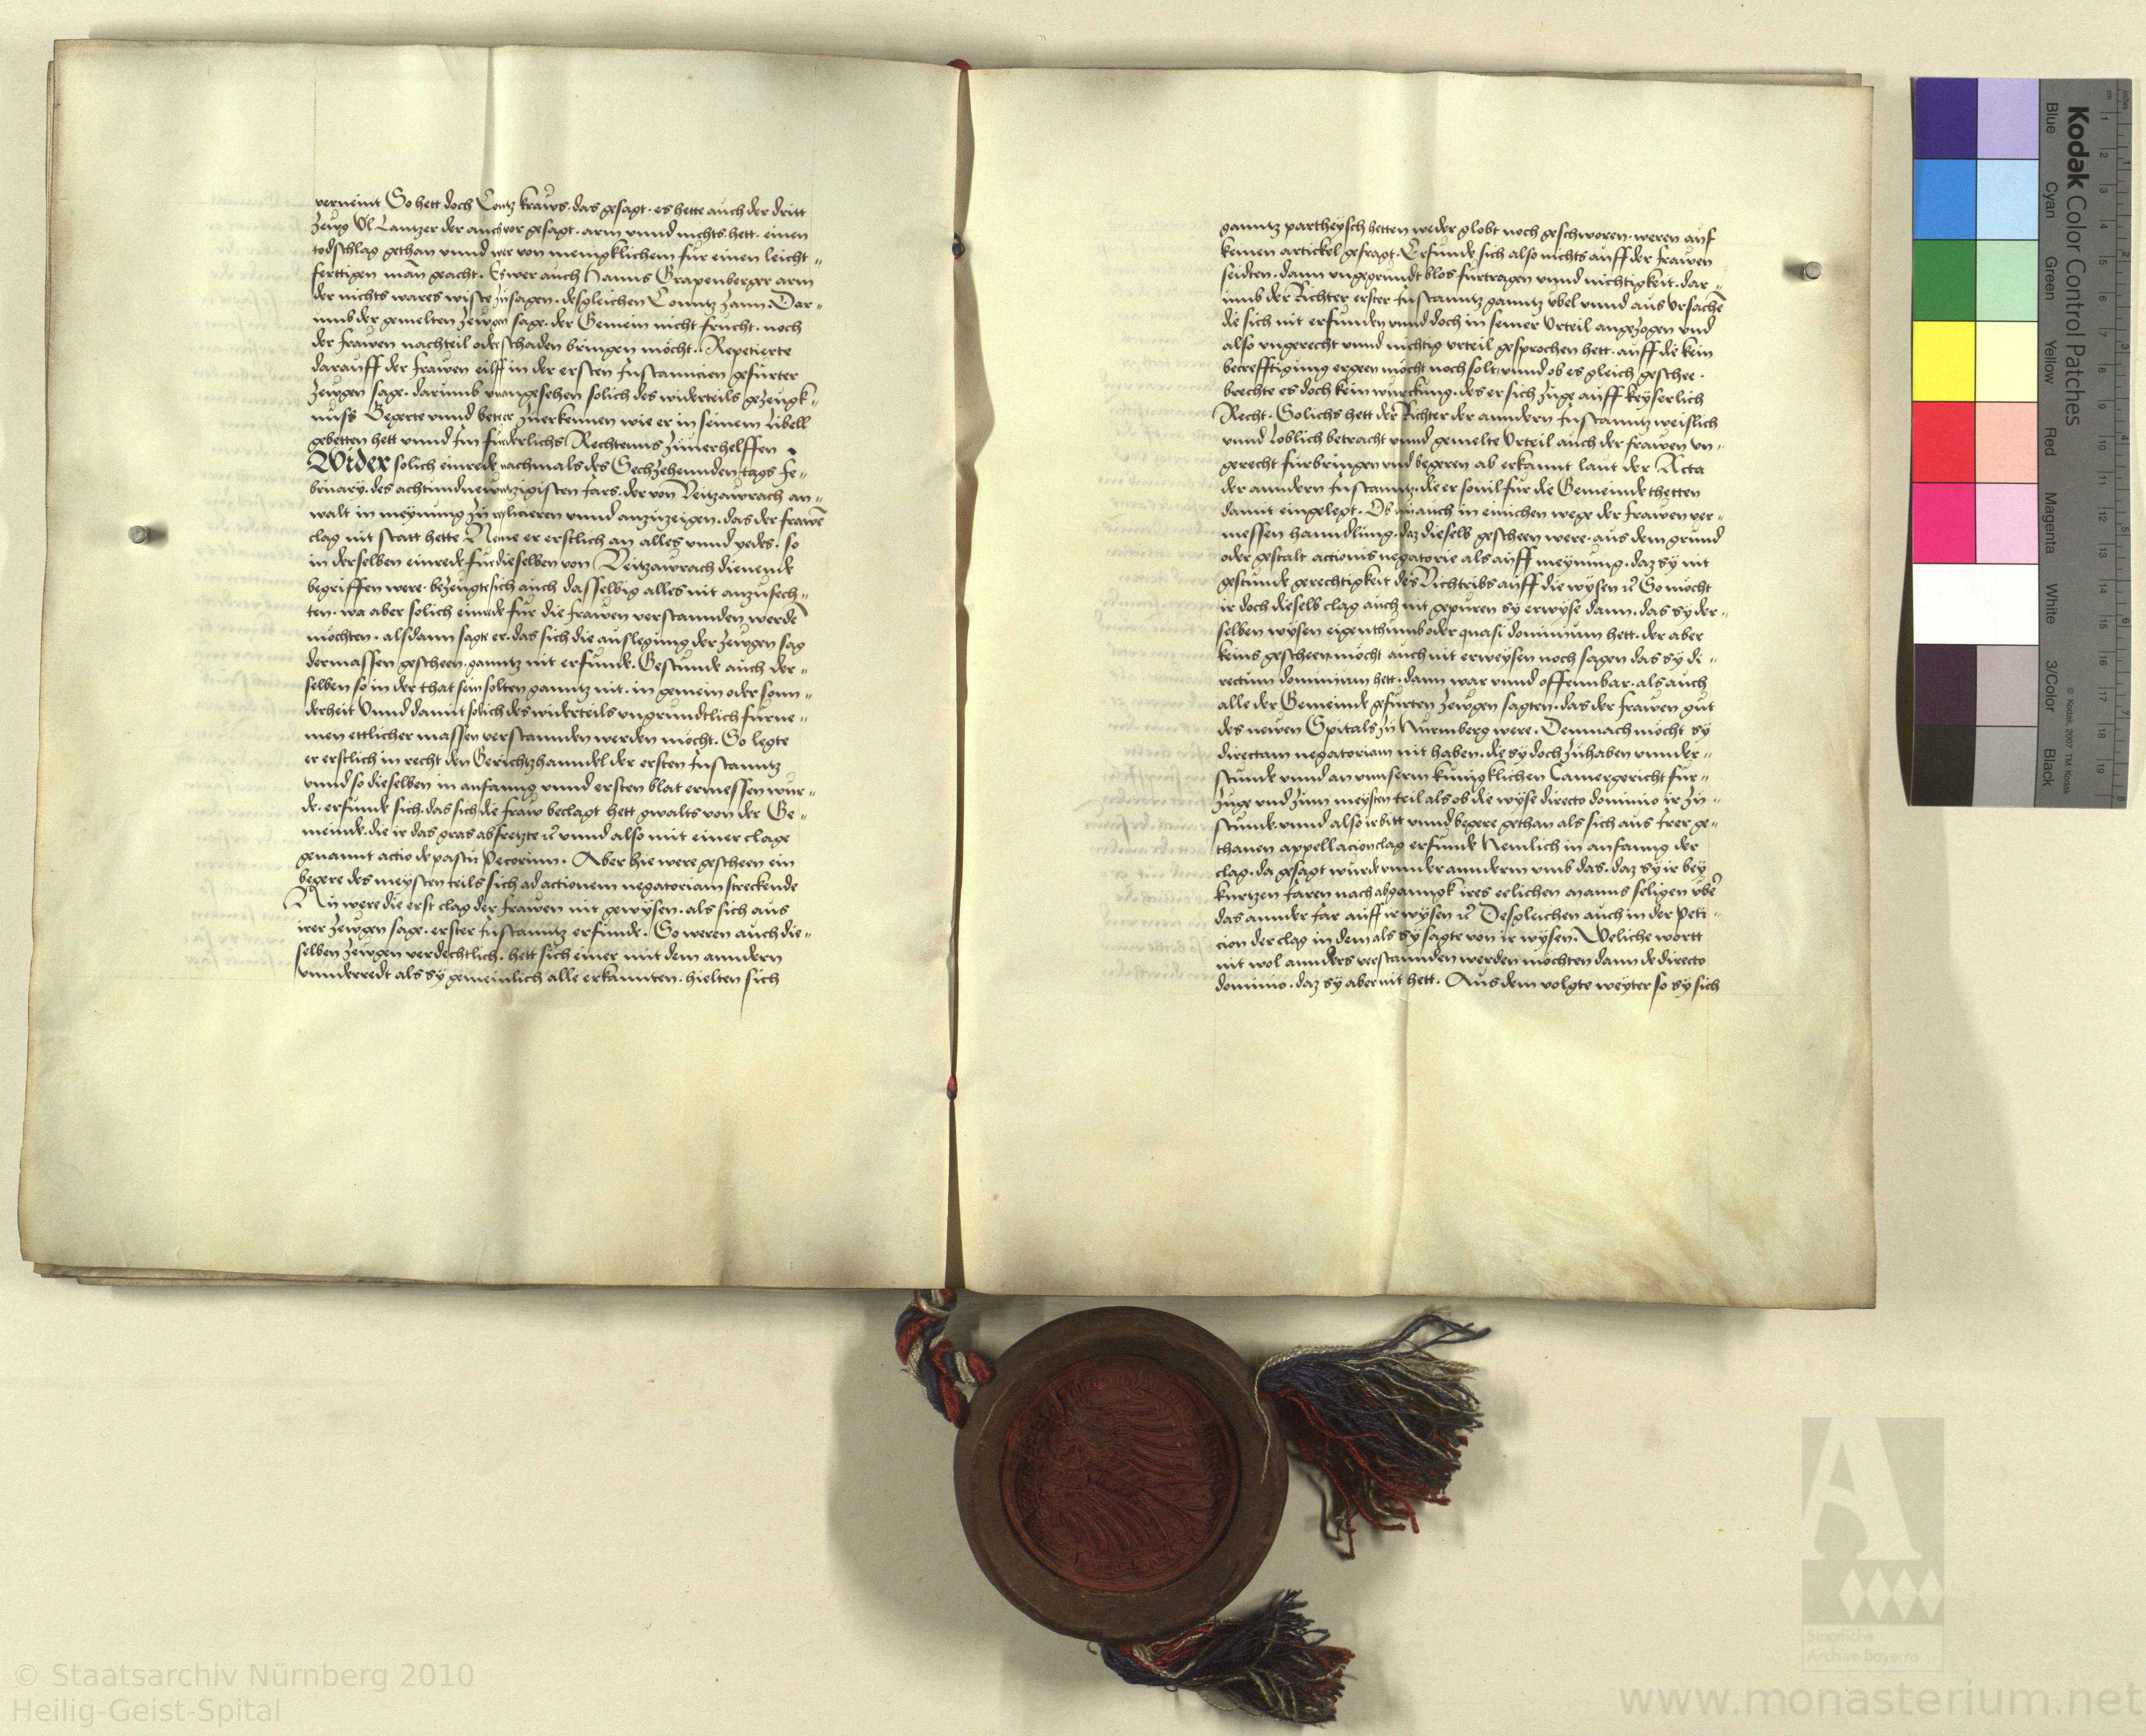 verneint So hett doch Contz kraws. das gesagt. es hette auch der dritt
Zewg Vl Lantzer der auch vor gesagt. arm vnnd nichts hett. einen
todschlag gethan vnnd wer von menigklichem für einen leicht„
ferttigen man geacht. Es wer auch Hanns Grapenberger arm
der nichts wares wiste zusagen. desgleichen Conntz Zann. Dar„
umb der gemelten Zewgen sage. der Gemein nicht frucht. noch
der frawen nachteil oder schaden bringen möcht. Repetierte
darauff der frawen eilff in der ersten Instanncien gefürter
Zewgen sage. darumb vnangesehen solich des widerteils gezeugk„
nuss Begerte vnnd bette zuerkennen wie er in seinem libell
gebetten hett vnnd Im fürderlichs Rechtenns zuuerhelffen.
Wider solich einrede nachmals des Sechzehennden tags Fe„
bruary. des achtundnewntzigisten Jars. der von Neitzawrach an„
walt in meynung zu replicieren vnnd anzuzeigen. das der frawē
clag nit statt hette Neme er erstlich an alles vnnd yedes. so
in derselben einrede für dieselben von Neitzawrach dienende
begriffen were. bezeugte sich auch dasselbig alles nit anzufech„
ten. wa aber solich einrede für die frawen verstannden werdē
möchten. alsdann sagt er. das sich die auslegung der Zewgen sag
dermassen gescheen. ganntz nit erfunde. Gestunde auch der„
selben so in der that sein solten ganntz nit. in gemein oder sonn„
derheit Vnnd damit solich des widerteils vngrundtlich fürne„
men ettlicher massen verstannden werden möcht. So legte
er erstlich in recht den Gerichtzhanndel der ersten Instanntz
vnnd so dieselben in anfanng vnnd ersten blat ermessen wur„
de. erfunde sich. das sich die fraw beclagt hett gwalts von der Ge„
meinde. die ir das gras abfretzte ꝛc vnnd also mit einer clage
genannt actio de pastu pecorum. Aber hie were gescheen ein
begere des meysten teils sich ad actionem negatoriam streckende
Nu were die erst clag der frawen nit gewysen. als sich aus
irer Zewgen sage. erster Instanntz erfunde. So weren auch die„
selben Zewgen verdechtlich. hett sich einer mit dem anndern
vnnderredt als sy gemeinlich alle erkannten. hielten sich
ganntz partheysch hetten weder globt noch geschworen. weren auf
keinen artickel gefragt. Erfunde sich also nichts auff der frawen
seidten. dann vngegrundt blos fürtragen vnnd nichtigkeit. dar„
umb der Richter erster Instanntz ganntz vbel vnnd aus vrsachē
die sich nit erfunden vnnd doch in seiner vrteil angezogen vnd
also vngerecht vnnd nichtig vrteil gesprochen hett. auff die kein
becrefftigung ergeen möcht noch solt vnnd ob es gleich geschee.
brechte es doch kein würckung. des er sich züge auff keyserlich
Recht. Solichs hett der Richter der anndern Instanntz weislich
vnnd loblich betracht vnnd gemelte vrteil auch der frawen vn„
gerecht fürbringen vnd begeren ab erkannt laut der Acta
der anndern Instanntz. die er souil für die Gemeinde thetten
damit eingelegt. Ob nu auch in einichen wege der frawen ver„
messen hanndlung. daz dieselb gescheen were. aus dem grund
oder gestalt actionis negatorie als auff meynung. daz sy nit
gestunde gerechtigkeit des Vichtribs auff die wysen ꝛc So möcht
ir doch dieselb clag auch nit gepüren sy erwyse dann. das sy der„
selben wysen eigenthumb oder quasi dominium hett. der aber
keins gescheen möcht auch nit erweysen noch sagen das sy di„
rectum dominium hett. dann war vnnd offennbar. als auch
alle der Gemeinde gefürten Zewgen sagten. das der frawen gut
des newen Spitals zu Nurmberg were. Demnach möcht sy
directam negatoriam nit haben. die sy doch zuhaben vnnder„
stunde vnnd an vnnserm kunigklichen Camergericht für„
züge vnd zum meysten teil als ob die wyse directo dominio ir zu„
stunde. vnnd also ir bitt vnnd begere gethan als sich aus irer ge„
thanen appellacion clag erfunde Nemlich in anfanng der
clag. da gesagt wurde vnnder annderm vmb das. daz sy ir bey
kurtzen Jaren nach abganngk ires eelichen manns seligen vbē
das annder Jar auff ir wysen ꝛc Desgleichen auch in der Peti„
cion der clag in dem als sy sagte von ir wysen. Weliche wortt
nit wol annders verstannden werden möchten dann de directo
dominio. daz sy aber nit hett. Aus dem volgte weyter so sy sich
Kodak Color Control Patches
Blue Cyan Green Yellow Red Magenta White 3/Color Black
© Kodak, 2007 TM: Kodak
© Staatsarchiv Nürnberg 2010
Heilig-Geist-Spital
Staatliche
Archive Bayerns
www.monasterium.net